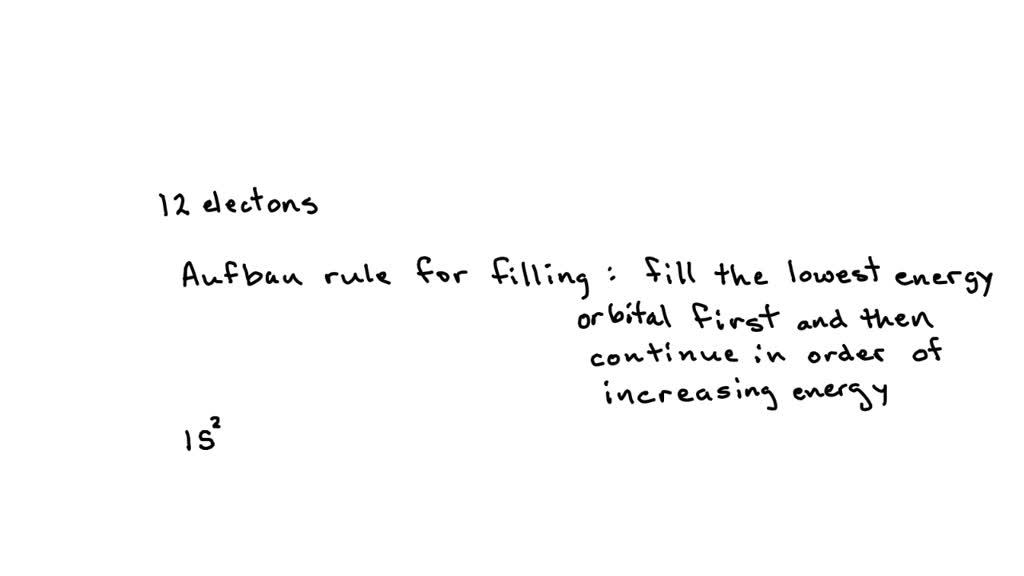 12 electons
Aufbau rule for filling : fill the lowest energy
orbital first and then
continue in order of
increasing energy
1S²